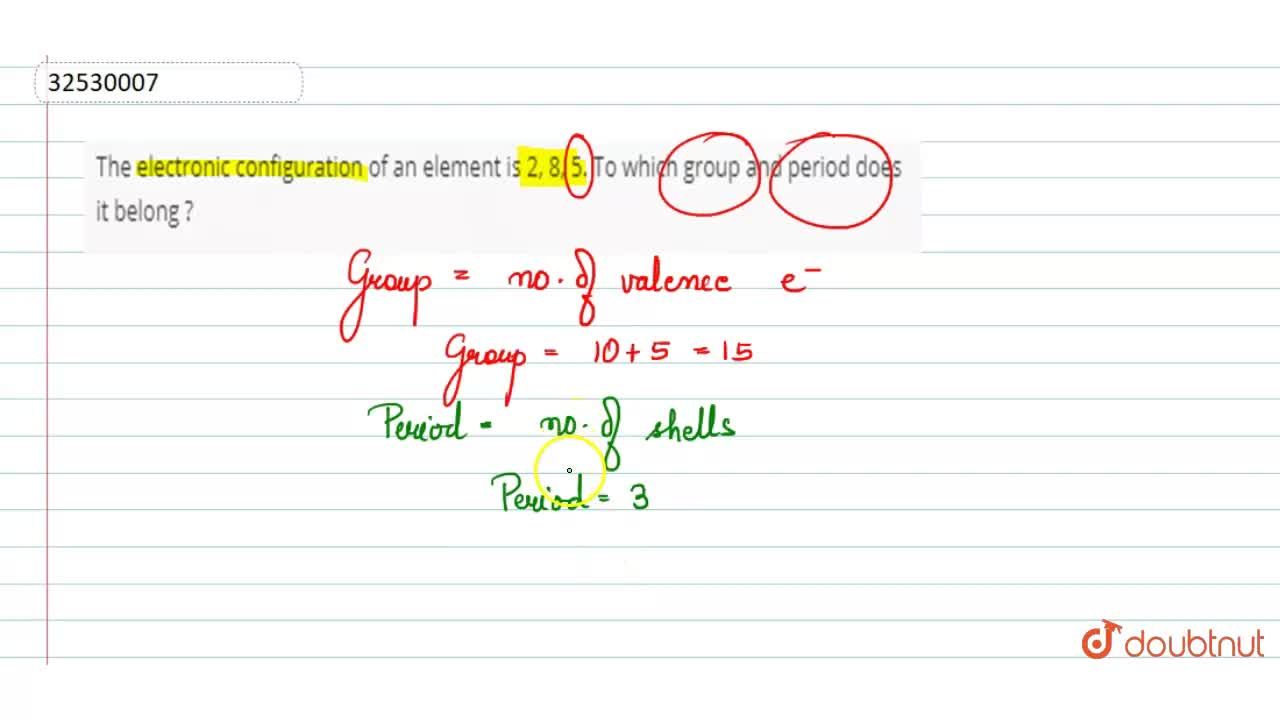 32530007
The electronic configuration of an element is 2, 8, 5. To which group and period does
it belong ?
Group = no. of valence e⁻
Group = 10 + 5 = 15
Period = no. of shells
Period = 3
doubtnut